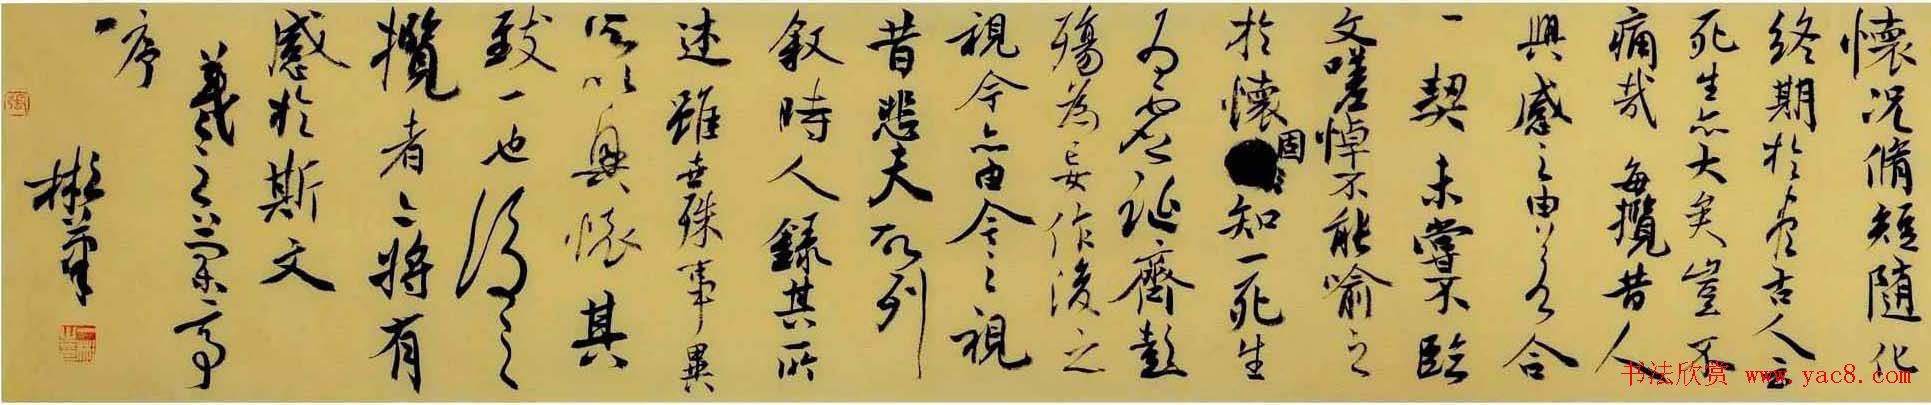 懷況脩短隨化
終期於盡古人云
死生亦大矣豈不
痛哉每攬昔人
興感之由若合
一契未嘗不臨
文嗟悼不能喻之
於懷固知一死生
為虛誕齊彭
殤為妄作後之
視今亦由今之視
昔悲夫故列
敘時人錄其所
述雖世殊事異
所以興懷其
致一也後之
攬者亦將有
感於斯文
羲之蘭亭
序
張
书法欣赏 www.yac8.com